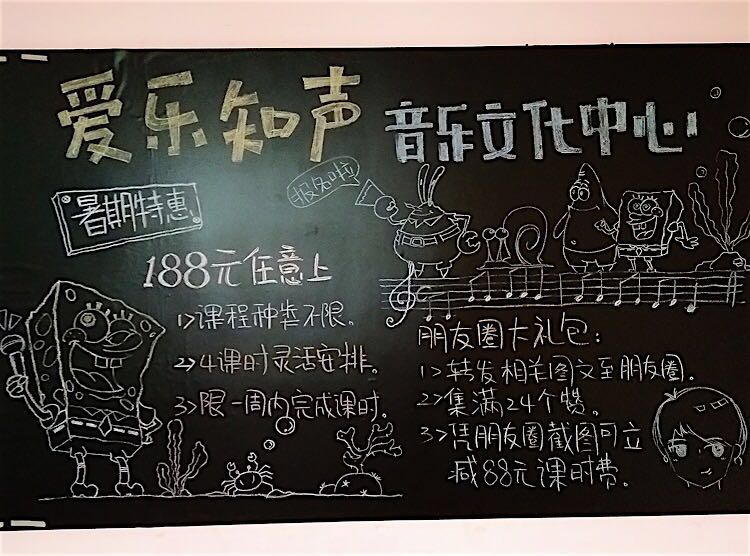 爱乐知声 音乐文化中心
报名啦
暑期特惠
188元任意上
1>课程种类不限。
2>4课时灵活安排。
3>限一周内完成课时。
朋友圈大礼包：
1>转发相关图文至朋友圈。
2>集满24个赞。
3>凭朋友圈截图可立
减88元课时费。